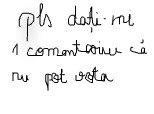 pls dați-mi
1 comentariu că
nu pot vota